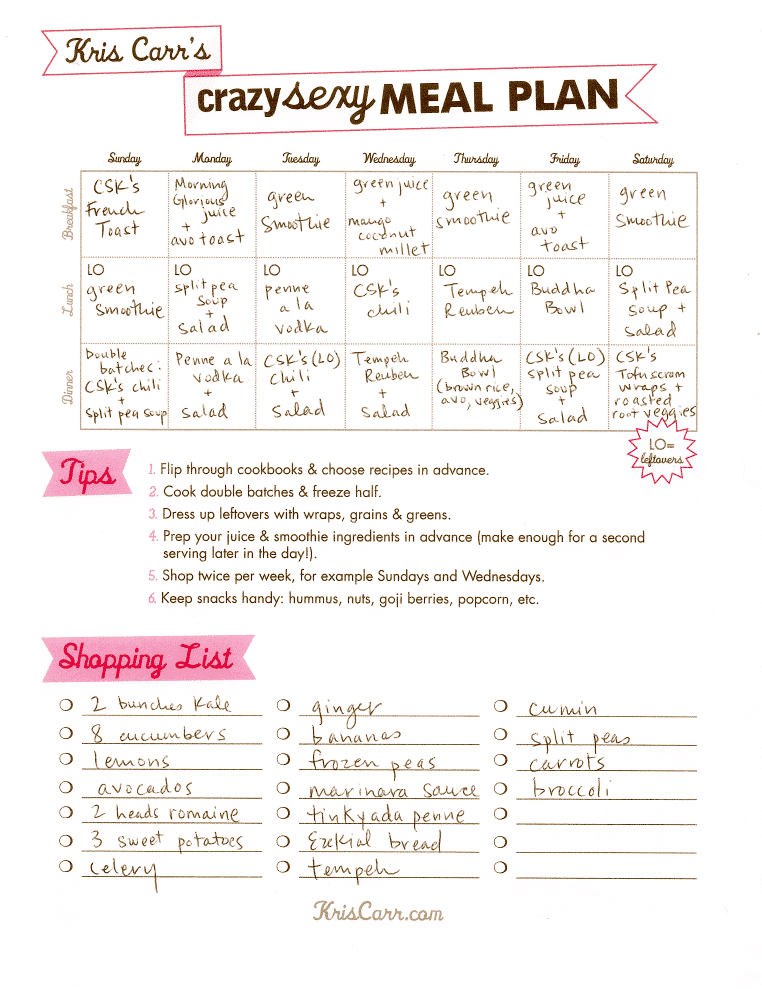 Kris Carr's
crazy sexy MEAL PLAN
Sunday Monday Tuesday Wednesday Thursday Friday Saturday
Breakfast
CSK's
French
Toast
Morning
Glorious
juice
+
avo toast
green
Smoothie
green juice
+
mango
coconut
millet
green
smoothie
green
juice
+
avo
toast
green
Smoothie
Lunch
LO
green
Smoothie
LO
split pea
Soup
+
Salad
LO
penne
a la
vodka
LO
CSK's
chili
LO
Tempeh
Reuben
LO
Buddha
Bowl
LO
Split Pea
Soup +
Salad
Dinner
Double
batches:
CSK's chili
+
Split pea soup
Penne a la
vodka
+
salad
CSK's (LO)
Chili
+
Salad
Tempeh
Reuben
+
Salad
Buddha
Bowl
(brown rice,
avo, veggies)
CSK's (LO)
split pea
soup
+
Salad
CSK's
Tofu scram
wraps +
roasted
root veggies
LO=
leftovers
Tips
1. Flip through cookbooks & choose recipes in advance.
2. Cook double batches & freeze half.
3. Dress up leftovers with wraps, grains & greens.
4. Prep your juice & smoothie ingredients in advance (make enough for a second
serving later in the day!).
5. Shop twice per week, for example Sundays and Wednesdays.
6. Keep snacks handy: hummus, nuts, goji berries, popcorn, etc.
Shopping List
2 bunches Kale
8 cucumbers
lemons
avocados
2 heads romaine
3 sweet potatoes
celery
ginger
bananas
frozen peas
marinara sauce
tinkyada penne
Ezekial bread
tempeh
cumin
split peas
carrots
broccoli
KrisCarr.com